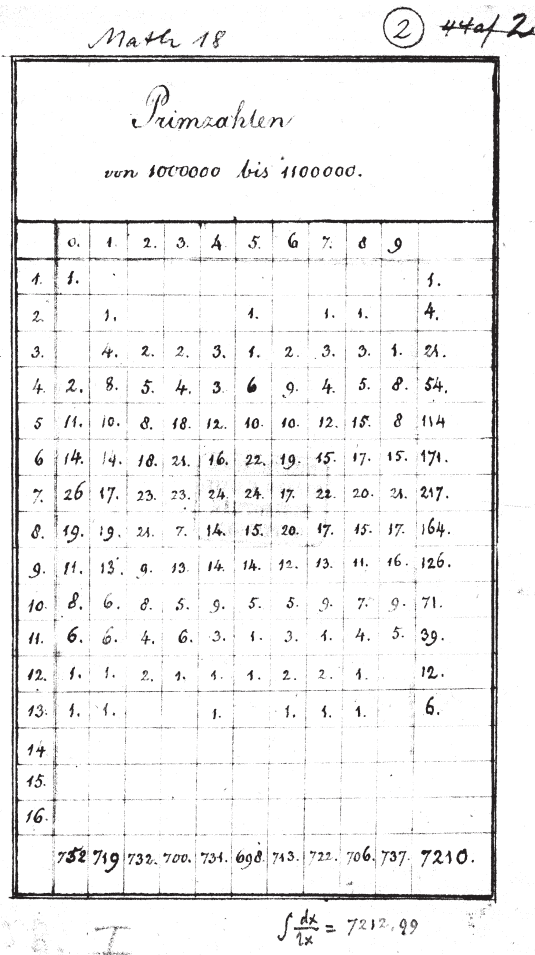 Math 18 2 44af 2
Primzahlen
von 1000000 bis 1100000.
0. 1. 2. 3. 4. 5. 6 7. 8 9
1. 1. 1.
2. 1. 1. 1. 1. 4.
3. 4. 2. 2. 3. 1. 2. 3. 3. 1. 21.
4. 2. 8. 5. 4. 3 6 9. 4. 5. 8. 54.
5 11. 10. 8. 18. 12. 10. 10. 12. 15. 8 114
6 14. 14. 18. 21. 16. 22. 19. 15. 17. 15. 171.
7. 26 17. 23. 23. 24. 24. 17. 22. 20. 21. 217.
8. 19. 19. 21. 7. 14. 15. 20. 17. 15. 17. 164.
9. 11. 13. 9. 13. 14. 14. 12. 13. 11. 16. 126.
10. 8. 6. 8. 5. 9. 5. 5. 9. 7. 9. 71.
11. 6. 6. 4. 6. 3. 1. 3. 1. 4. 5. 39.
12. 1. 1. 2. 1. 1. 1. 2. 2. 1. 12.
13. 1. 1. 1. 1. 1. 1. 6.
14
15.
16.
752 719 732. 700. 731. 698. 713. 722. 706. 737. 7210.
∫ dx/lx = 7212,99
I